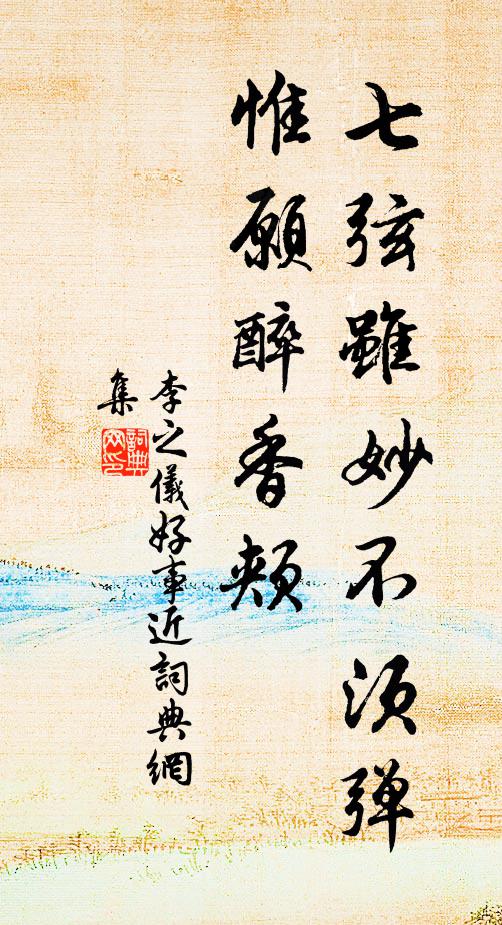 七弦雖妙不須弹
惟願醉香頰
李之儀好事近詞典網
集
詞典網印